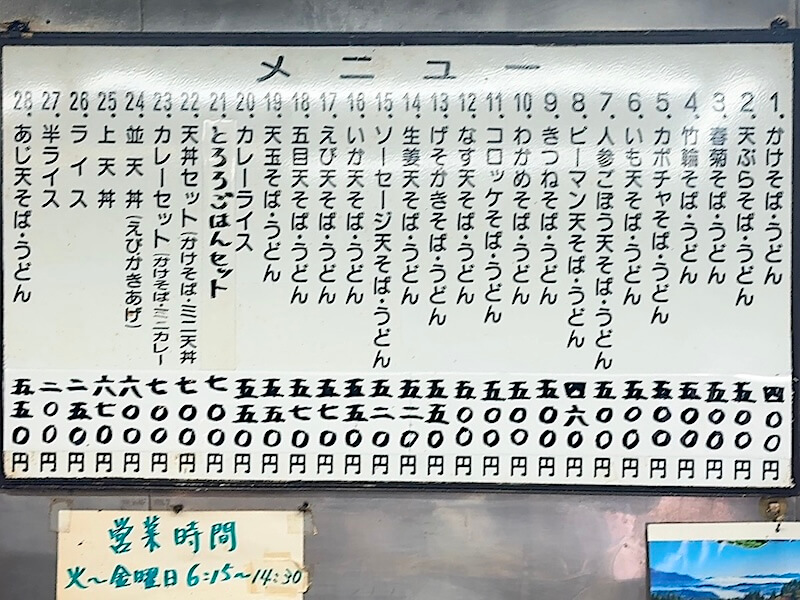 メニュー
1. かけそば・うどん 四〇〇円
2. 天ぷらそば・うどん 五〇〇円
3. 春菊そば・うどん 五〇〇円
4. 竹輪そば・うどん 五〇〇円
5. カボチャそば・うどん 五〇〇円
6. いも天そば・うどん 五〇〇円
7. 人参ごぼう天そば・うどん 五〇〇円
8. ピーマン天そば・うどん 四六〇円
9. きつねそば・うどん 五〇〇円
10. わかめそば・うどん 五〇〇円
11. コロッケそば・うどん 五〇〇円
12. なす天そば・うどん 五〇〇円
13. げそかきそば・うどん 五五〇円
14. 生姜天そば・うどん 五二〇円
15. ソーセージ天そば・うどん 五二〇円
16. いか天そば・うどん 五五〇円
17. えび天そば・うどん 五七〇円
18. 五目天そば・うどん 五七〇円
19. 天玉そば・うどん 五五〇円
20. カレーライス 五五〇円
21. とろろごはんセット 七〇〇円
22. 天丼セット(かけそば・ミニ天丼 七〇〇円
23. カレーセット(かけそば・ミニカレー 七〇〇円
24. 並天丼(えびかきあげ) 六〇〇円
25. 上天丼 六七〇円
26. ライス 二五〇円
27. 半ライス 二〇〇円
28. あじ天そば・うどん 五五〇円
営業時間
火〜金曜日 6:15〜14:30